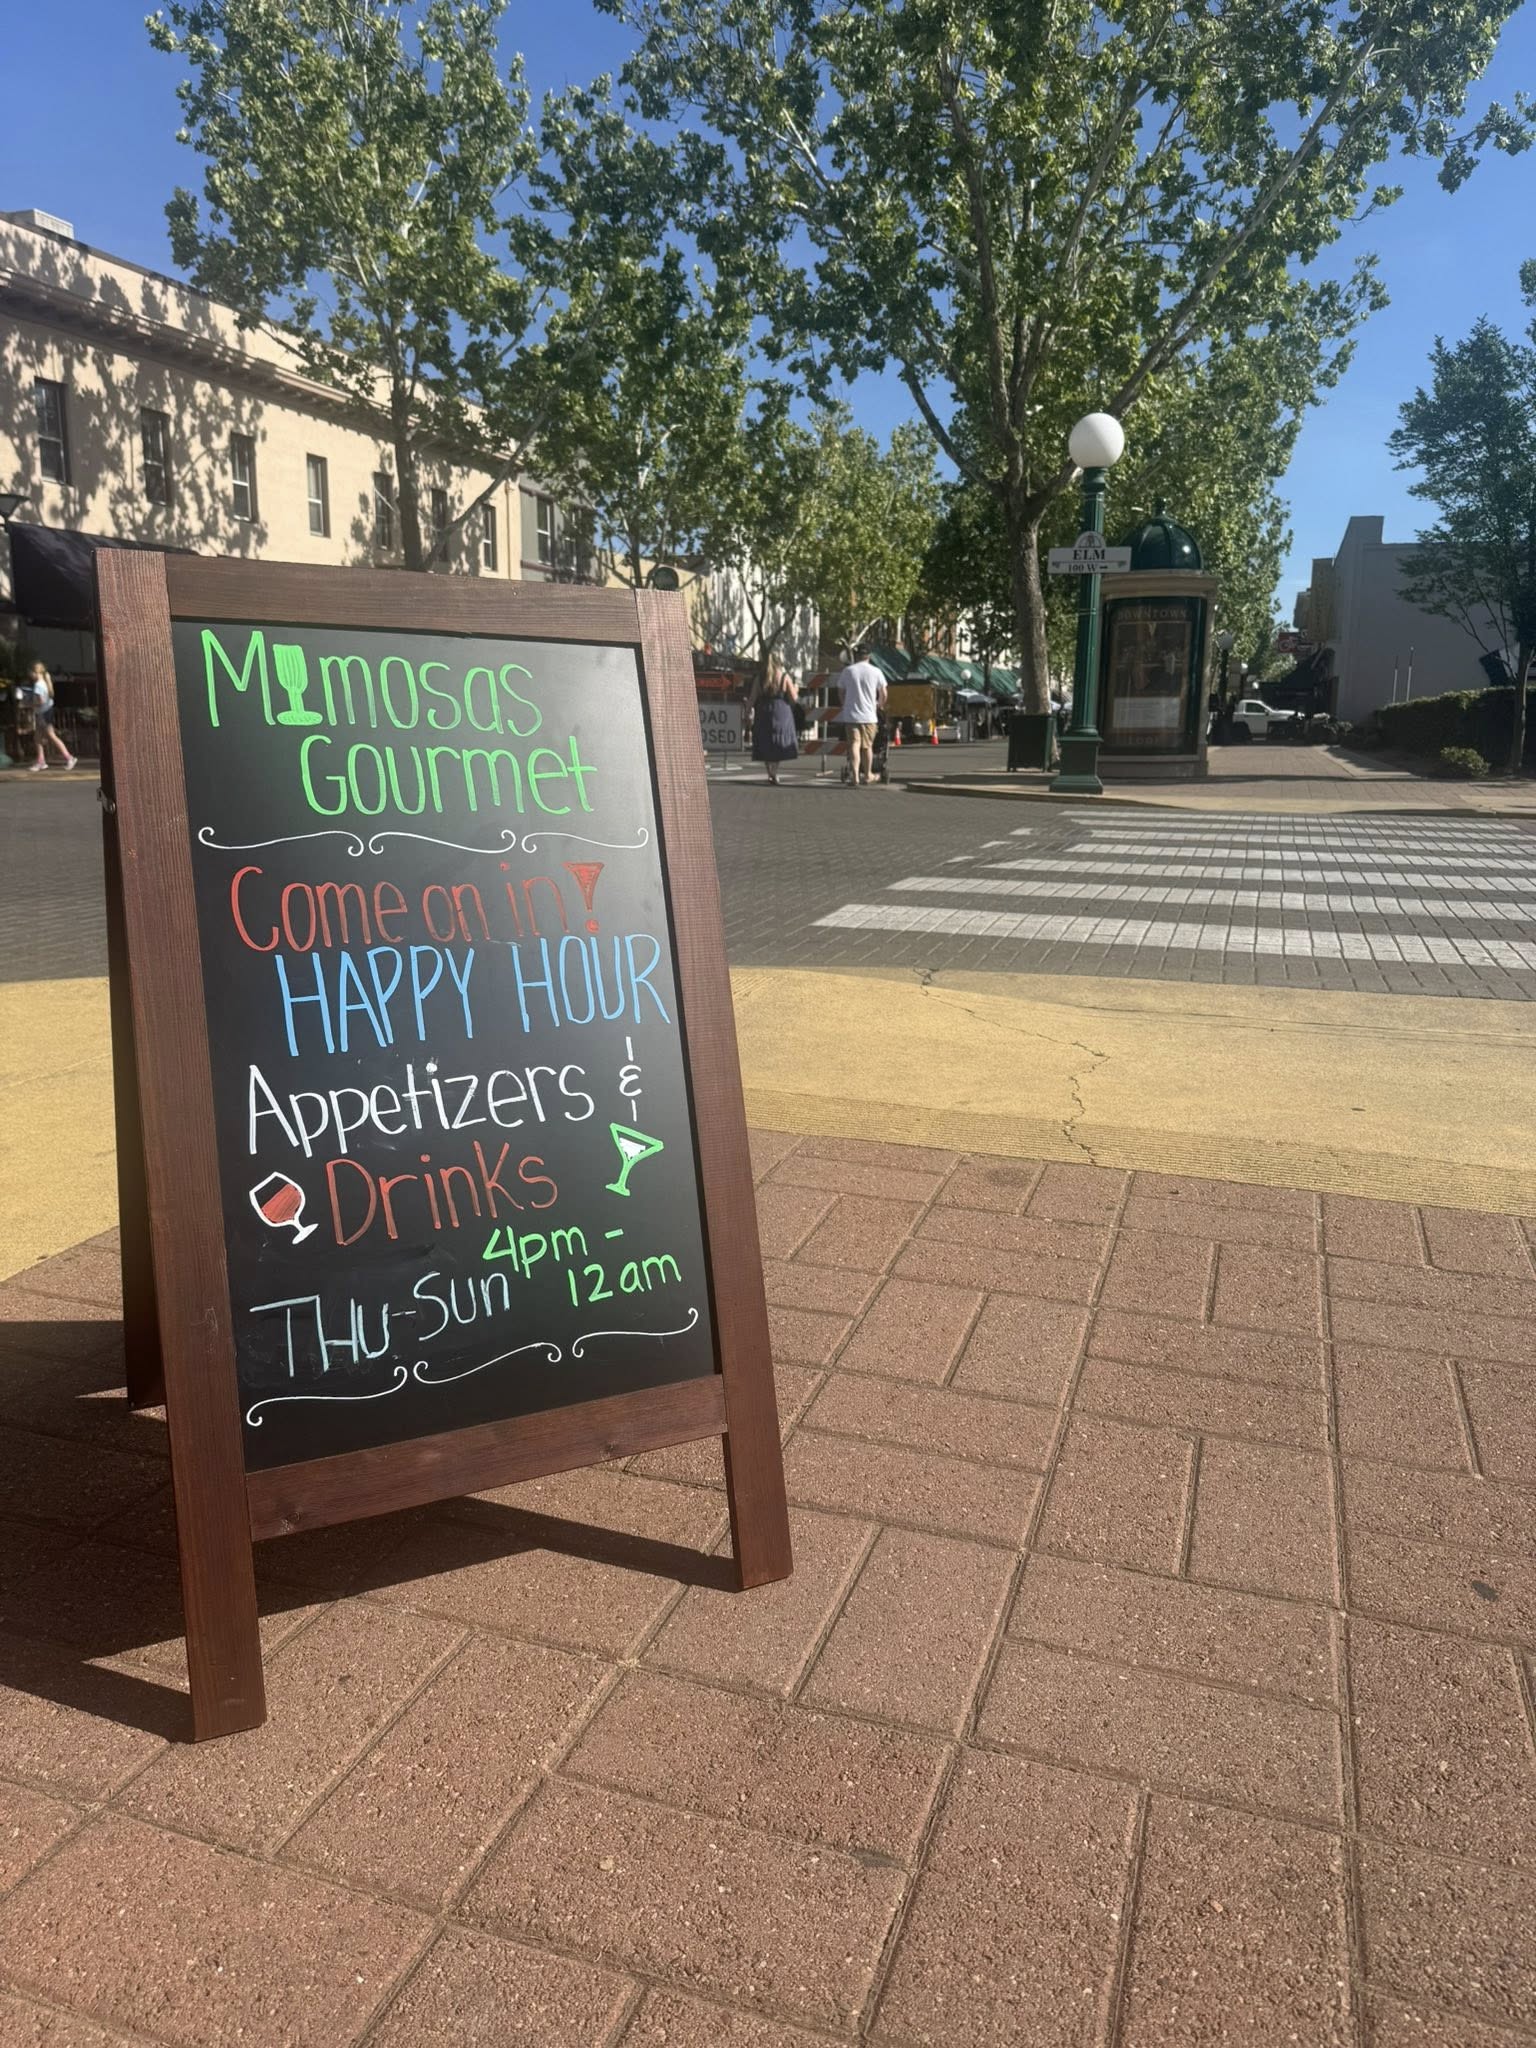 Mimosas
Gourmet
Come on in!
HAPPY HOUR
Appetizers &
Drinks
4pm -
12am
THU-Sun
ELM
100 W
DOWNTOWN
ROAD
CLOSED